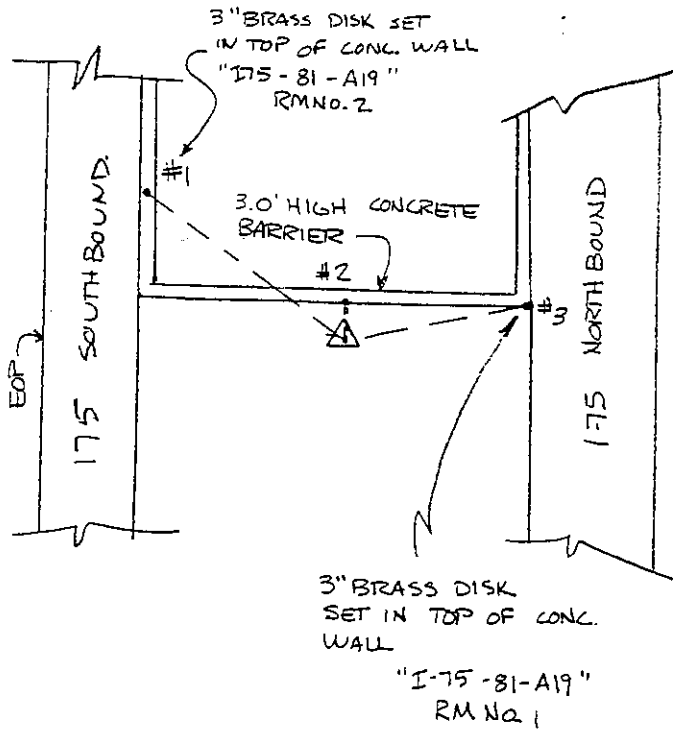 3" BRASS DISK SET
IN TOP OF CONC. WALL
"I75-81-A19"
RM NO. 2
#1
3.0' HIGH CONCRETE
BARRIER
#2
#3
EOP
I75 SOUTH BOUND.
I-75 NORTH BOUND
3" BRASS DISK
SET IN TOP OF CONC.
WALL
"I-75-81-A19"
RM NO. 1